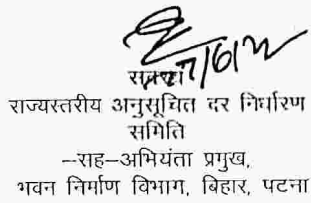 राज्यस्तरीय अनुसूचित दर निर्धारण
समिति
–सह–अभियंता प्रमुख,
भवन निर्माण विभाग, बिहार, पटना